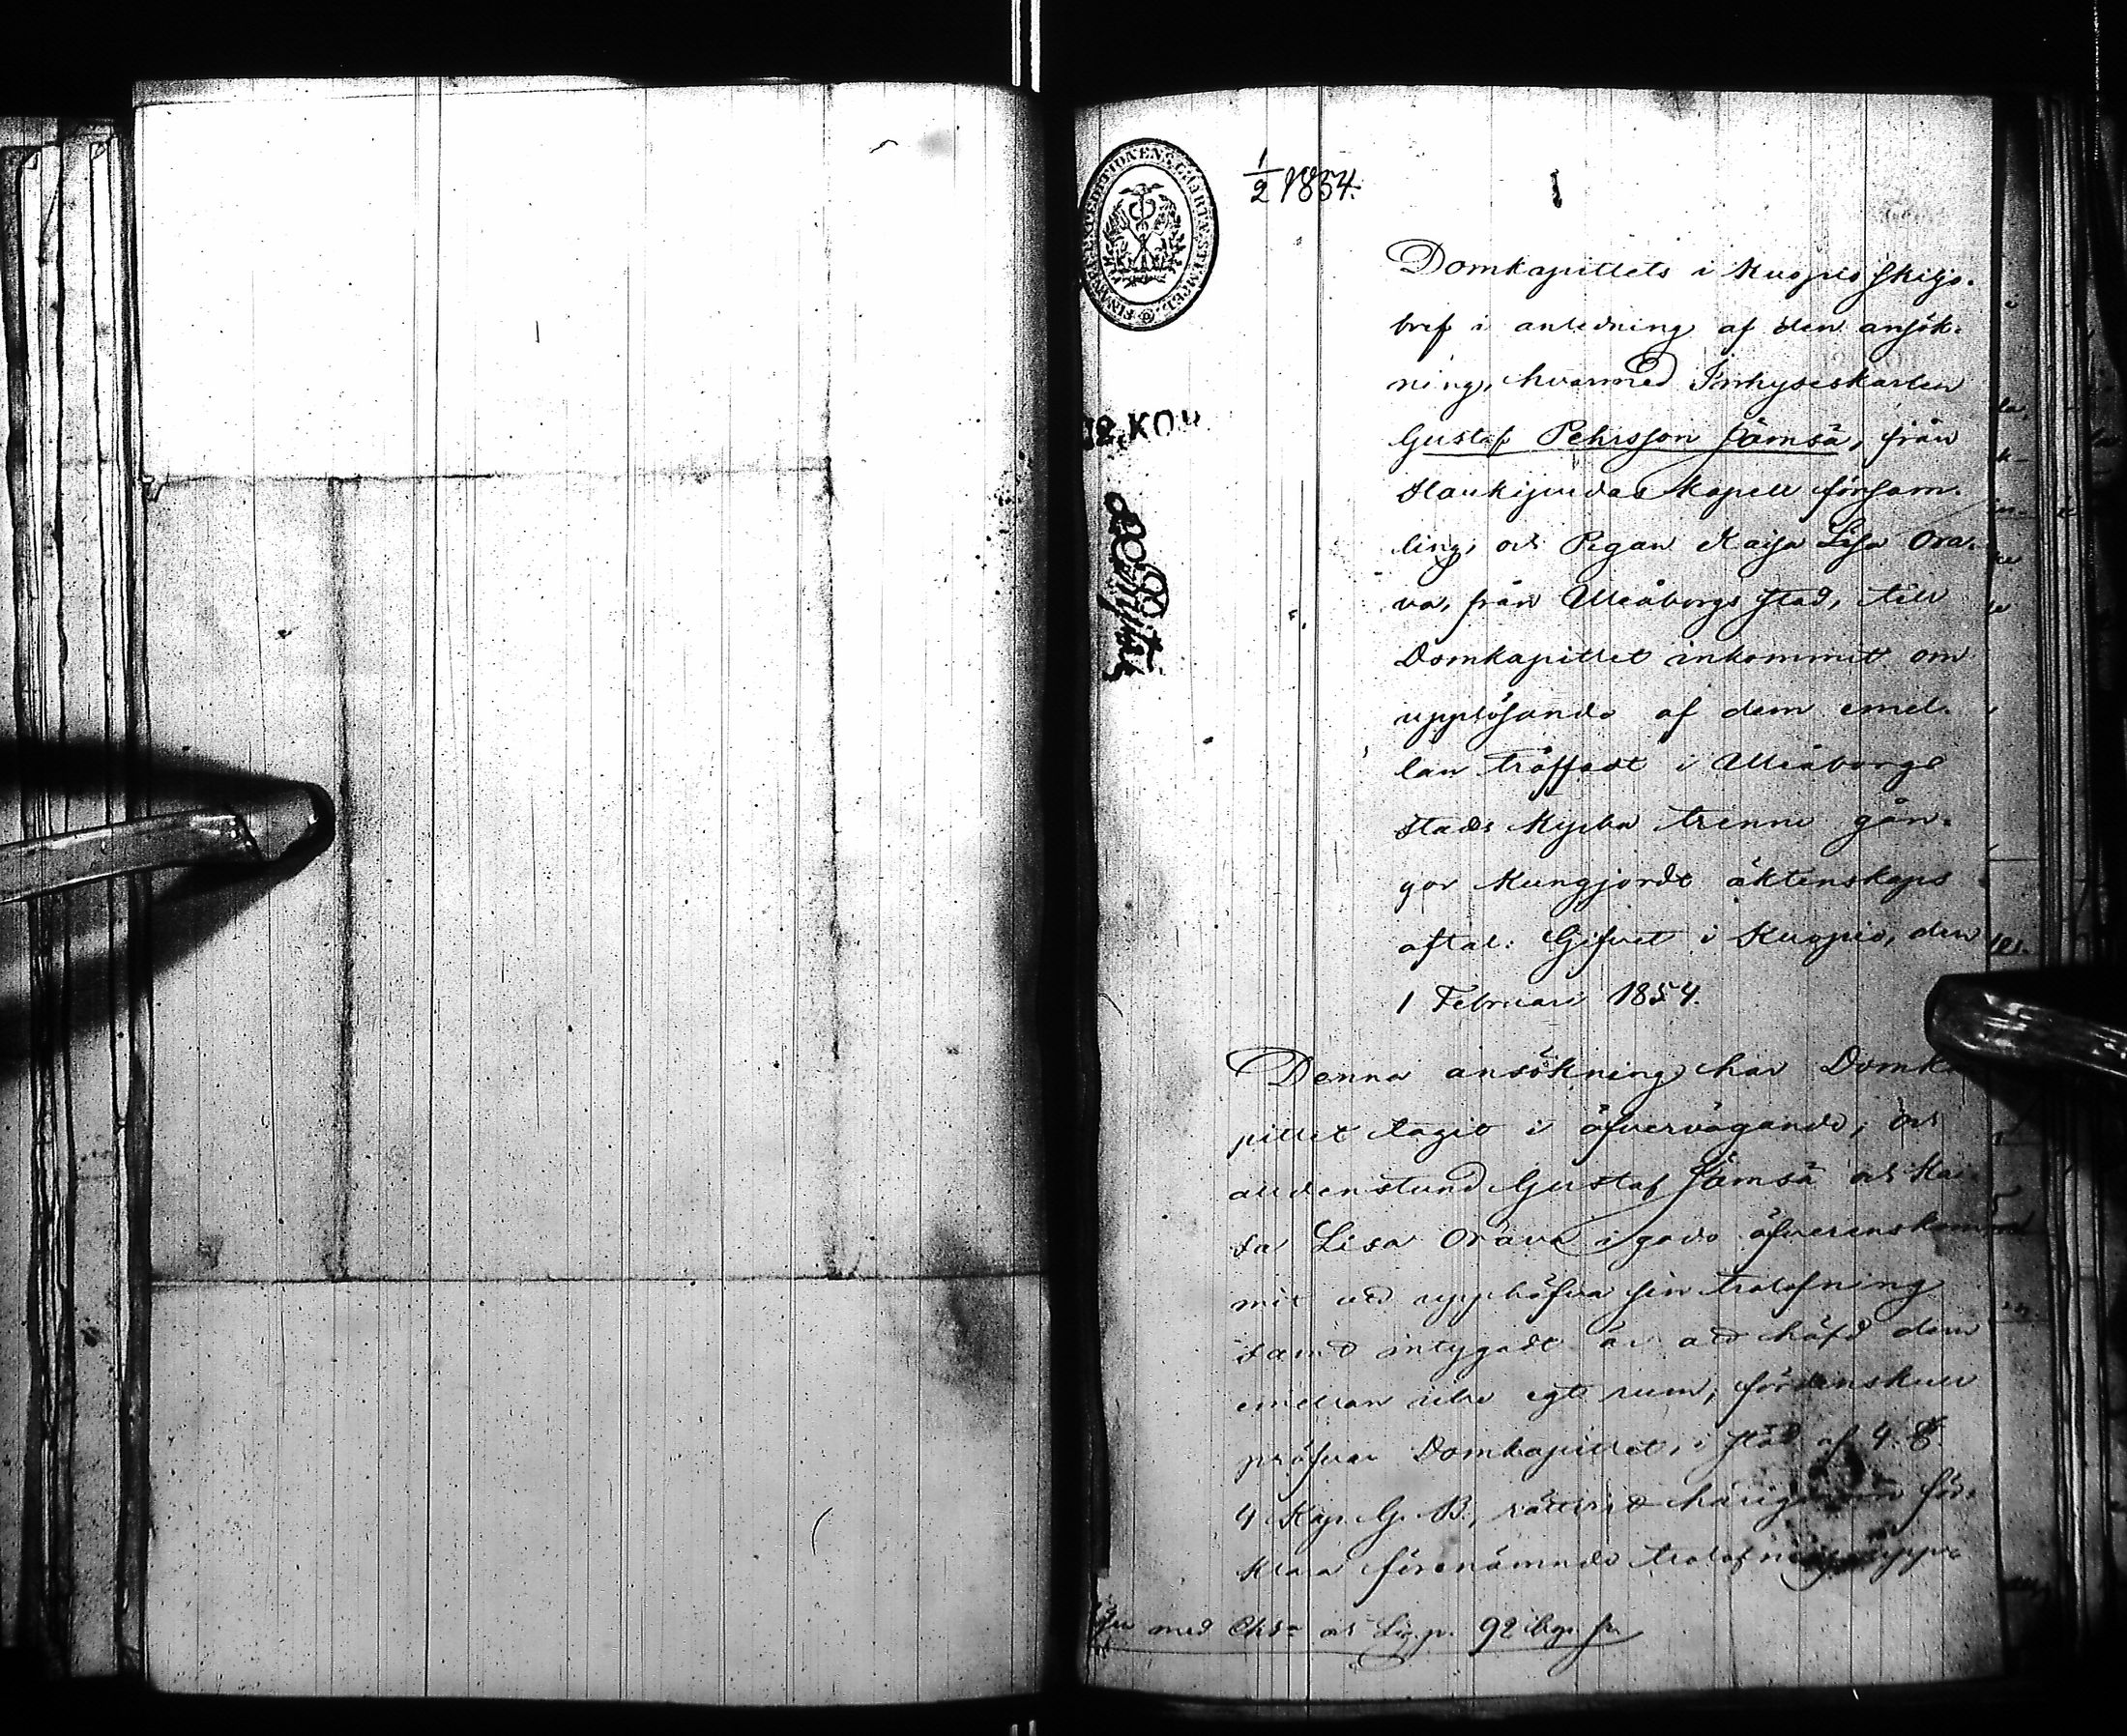 FINANS EXPEDITIONENS CHARTÆ STÄMPEL
1/2 1854.
1
Domkapitlets i Kuopio skiljo-
bref i anledning af den ansök-
ning, hvarmed Inhyseskarlen
Gustaf Pehrsson Jämsä, från
Haukipudas Kapell försam-
ling, och Pigan Kaisa Lisa Ora-
va, från Uleåborgs stad, till
Domkapitlet inkommit om
upplösande af dem emel-
lan träffadt i Uleåborgs
stads kyrka trenne gån-
gor kungjordt äktenskaps
aftal: Gifvet i Kuopio, den
1 Februari 1854.
Denna ansökning har Domka
pitlet tagit i öfvervägande; och
alldenstund Gustaf Jämsä och Kai
sa Lisa Orava i godo öfverenskom
mit att upphäfva sin trolofning
samt intygadt är att häfd dem
emellan icke egt rum; fördenskull
pröfvar Domkapitlet, i stöd af 4. §.
4 Kap. G. B., rättvist härigenom för-
klara förenämnde trolofning upp-
med och 92 kop. Sr